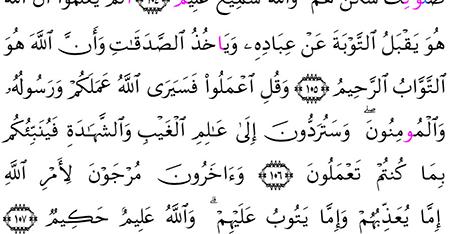 صَلَوٰتِكَ سَكَنٌ لَّهُمْ وَاللَّهُ سَمِيعٌ عَلِيمٌ ١٠٤ أَلَمْ يَعْلَمُوا أَنَّ اللَّهَ
هُوَ يَقْبَلُ التَّوْبَةَ عَنْ عِبَادِهِۦ وَيَاخُذُ الصَّدَقَٰتِ وَأَنَّ اللَّهَ هُوَ
التَّوَّابُ الرَّحِيمُ ١٠٥ وَقُلِ اعْمَلُوا فَسَيَرَى اللَّهُ عَمَلَكُمْ وَرَسُولُهُۥ
وَالْمُومِنُونَۖ وَسَتُرَدُّونَ إِلَىٰ عَٰلِمِ الْغَيْبِ وَالشَّهَٰدَةِ فَيُنَبِّئُكُم
بِمَا كُنتُمْ تَعْمَلُونَ ١٠٦ وَءَاخَرُونَ مُرْجَوْنَ لِأَمْرِ اللَّهِ
إِمَّا يُعَذِّبُهُمْ وَإِمَّا يَتُوبُ عَلَيْهِمْۗ وَاللَّهُ عَلِيمٌ حَكِيمٌ ١٠٧